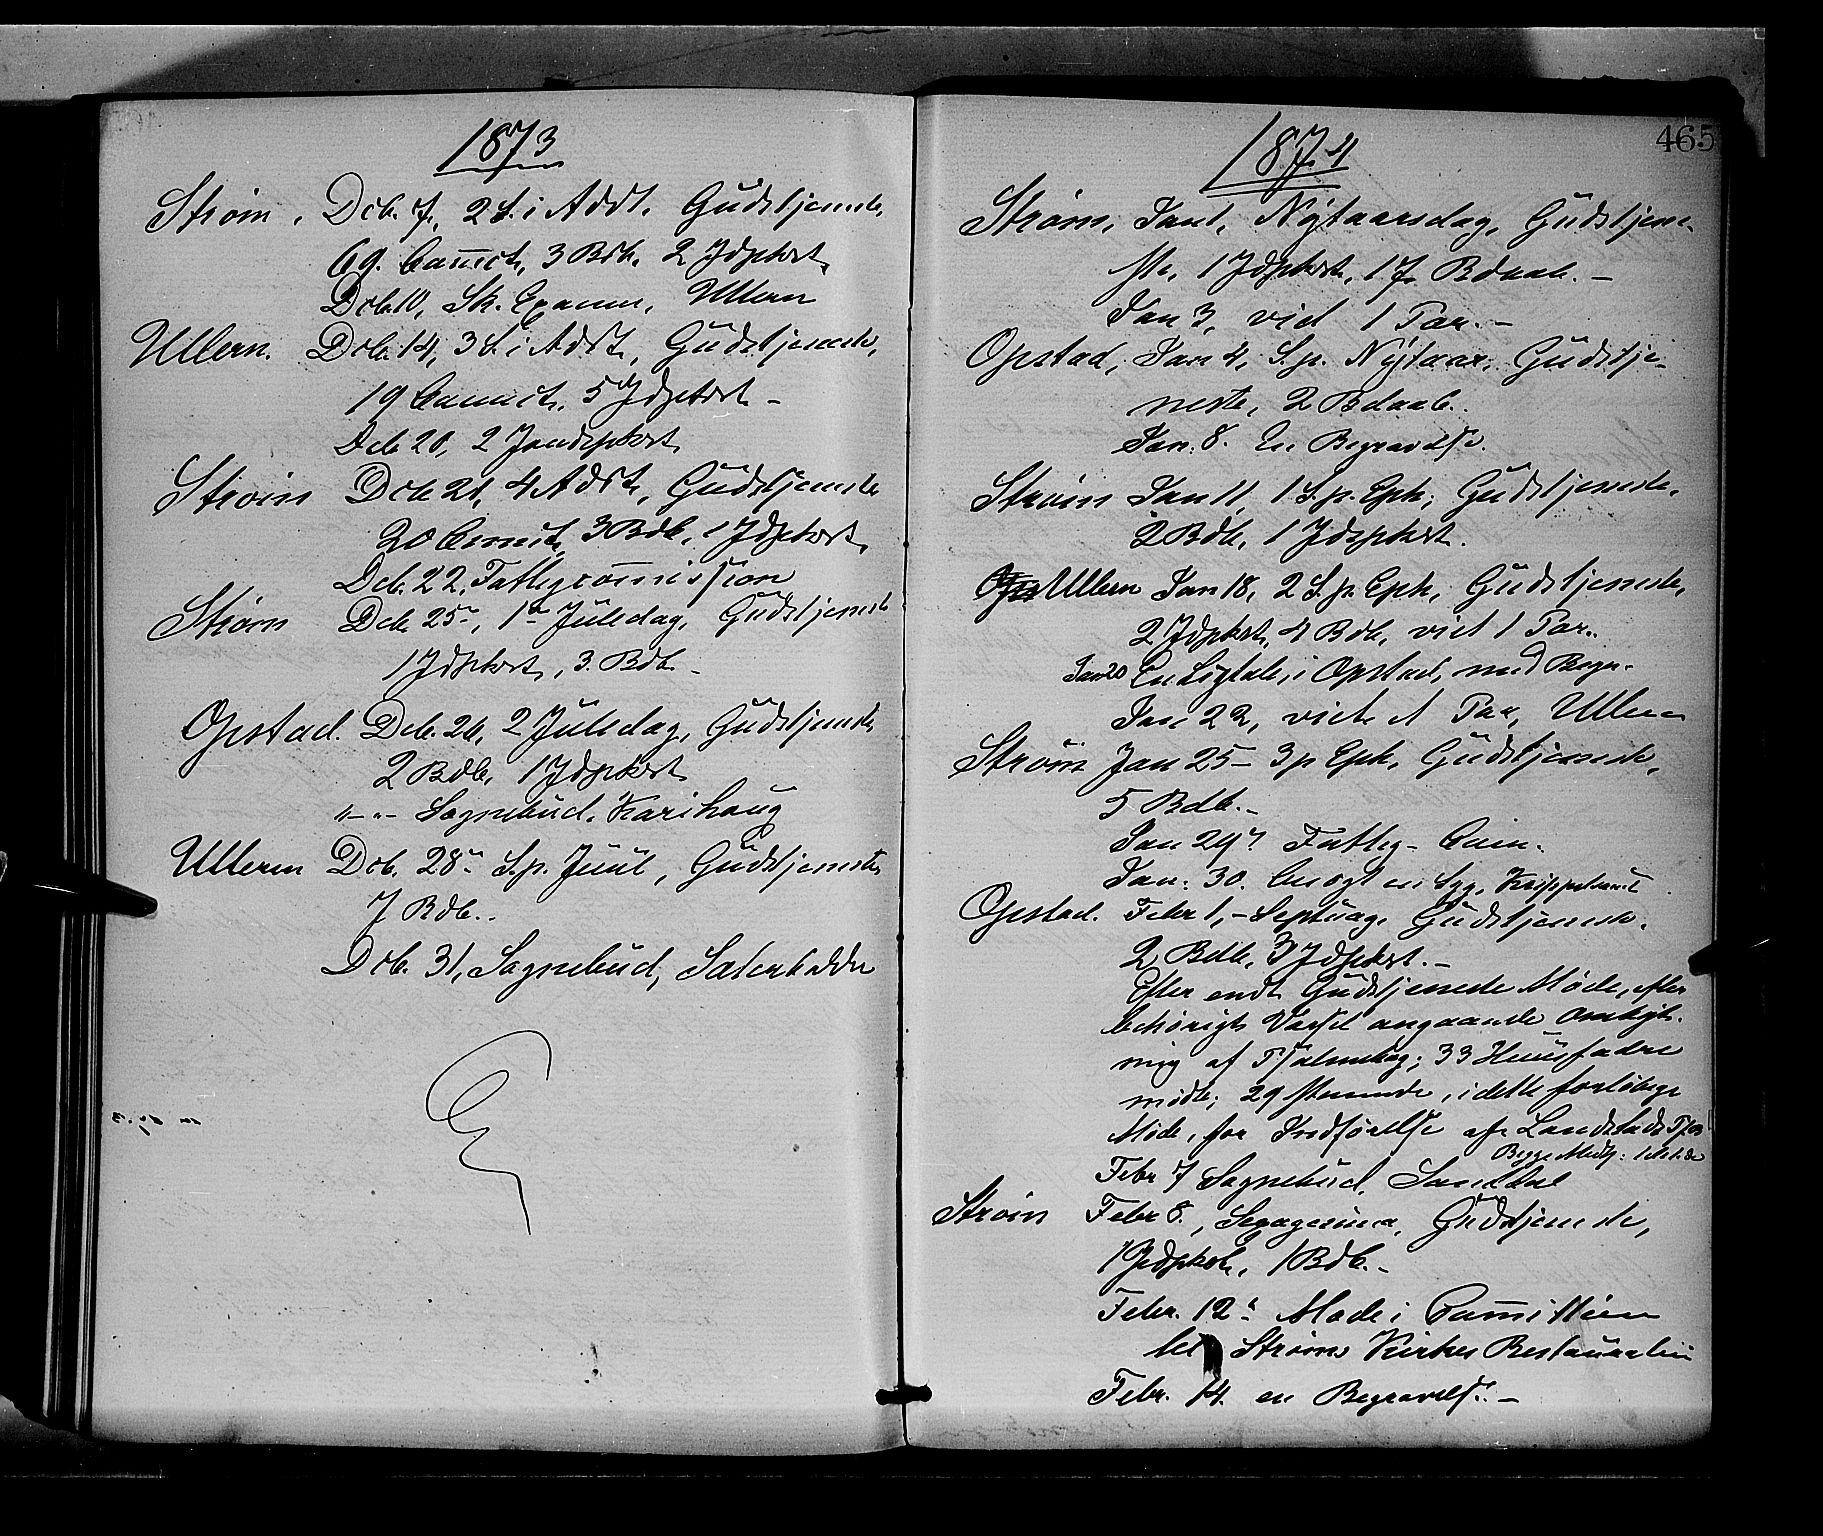 1873
Strøm. Dcb. 7, 2 S. i Advt. Gudstjeneste
69. Commct, 3 Bdb. 2 Jdpkst.
Dcb. 10, Sk. Examen, Ullern
Ullern. Dcb. 14, 3 S. i Advt, Gudstjeneste,
19 Commct. 5 Jdpkst. –
Dcb 20, 2 Jondspkst
Strøm Dcb 21, 4 Advt, Gudstjeneste
20 Commct, 3 Bdb, 1 Jdpkst,
Dcb. 22, Fattigcommission
Strøm Dcb. 25, 1ste Juledag, Gudstjeneste
1 Jdpkst, 3. Bdb. –
Opstad. Dcb. 26, 2 Juledag, Gudstjeneste,
2 Bdb, 1 Jdpkst
"–"– Sognebud, Karihaug
Ullern Dcb. 28 S. p. Juul, Gudstjeneste
7 Bdb..
Dcb. 31, Sognebud, Sæterbødde
1874
465
Strøm, Jan 1, Nytaarsdag, Gudstjene-
ste, 1 Jdpkst, 17 Bdaab. –
Jan 3, viet 1 Par. –
Opstad, Jan 4, S. p. Nytaar, Gudstje-
neste, 2 Bdaab.
Jan. 8. En Begravelse.
Strøm Jan 11, 1 S. p. Eph, Gudstjeneste,
2 Bdb, 1 Jdspkst.
Ullern Jan 18, 2 S. p. Eph, Gudstjeneste,
2 Jdpkst, 4 Bdb, viet 1 Par.
Jan 20 En Ligtale, i Opstad, med Begr.
Jan 22, viet et Par, Ullern
Strøm Jan 25 – 3 p Eph, Gudstjeneste,
5 Bdb. –
Jan 29 Fattig – Com.
Jan. 30. besøgt en Syg,
Opstad. Febr 1, – Septuag, Gudstjeneste.
2 Bdb, 3 Jdpkst. –
Efter endt Gudstjeneste Møde, efter
behørigt Varsel angaaende Ombyt-
ning af Psalmebog; 33 Huusfædre
mødte; 29 stemmde, i dette foreløbige
Møde, for Indførelse af Landstads Ps.
Febr 7 Sognebud,
Strøm Febr 8., Sexagesima, Gudstjeneste,
1 Jdpkst, 1 Bdb. –
Febr. 12 Møde i Committeen
Strøms Kirkes Restauration
Febr. 14. en Begravelse. –